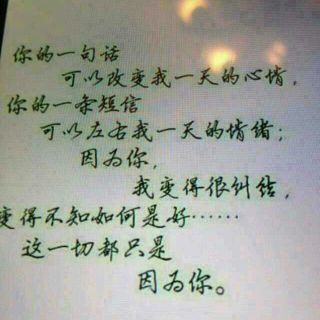 你的一句话
可以改变我一天的心情,
你的一条短信
可以左右我一天的情绪;
因为你,
我变得很纠结,
变得不知如何是好……
这一切都只是
因为你。